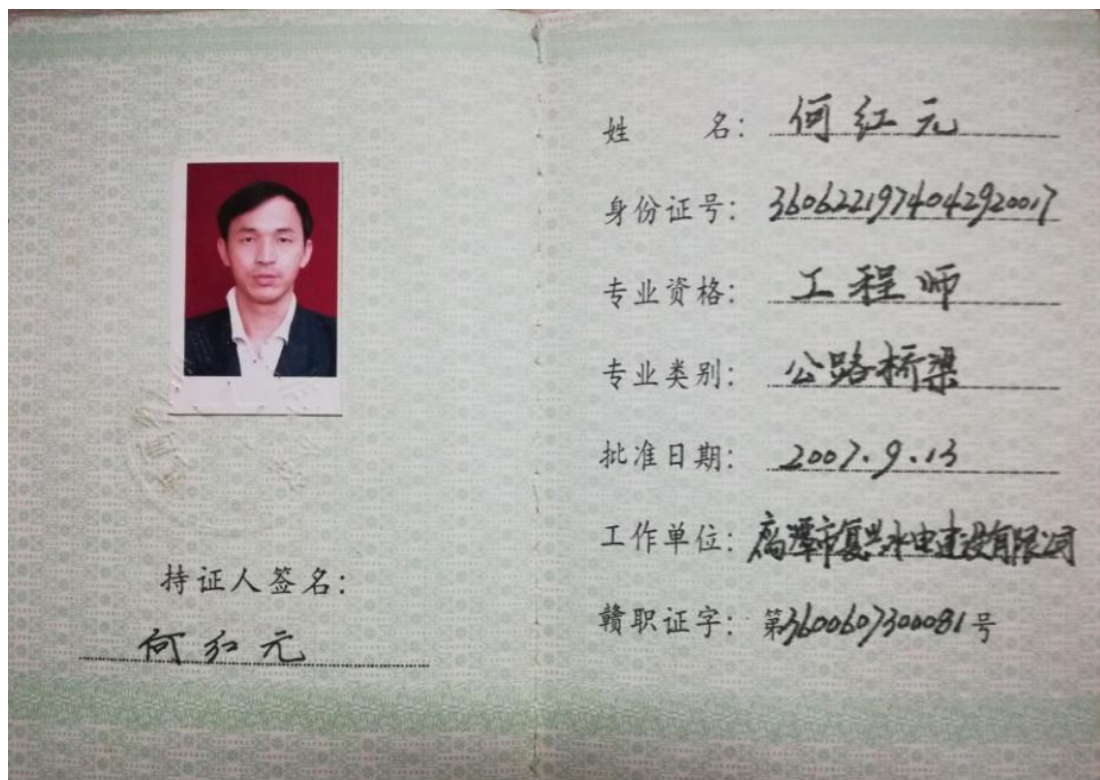 持证人签名：
何红元
姓 名： 何红元
身份证号： 3606221974042920017
专业资格： 工程师
专业类别： 公路桥梁
批准日期： 2007.9.13
工作单位： 鹰潭市复兴水电建设有限公司
赣职证字： 第3600607300081号